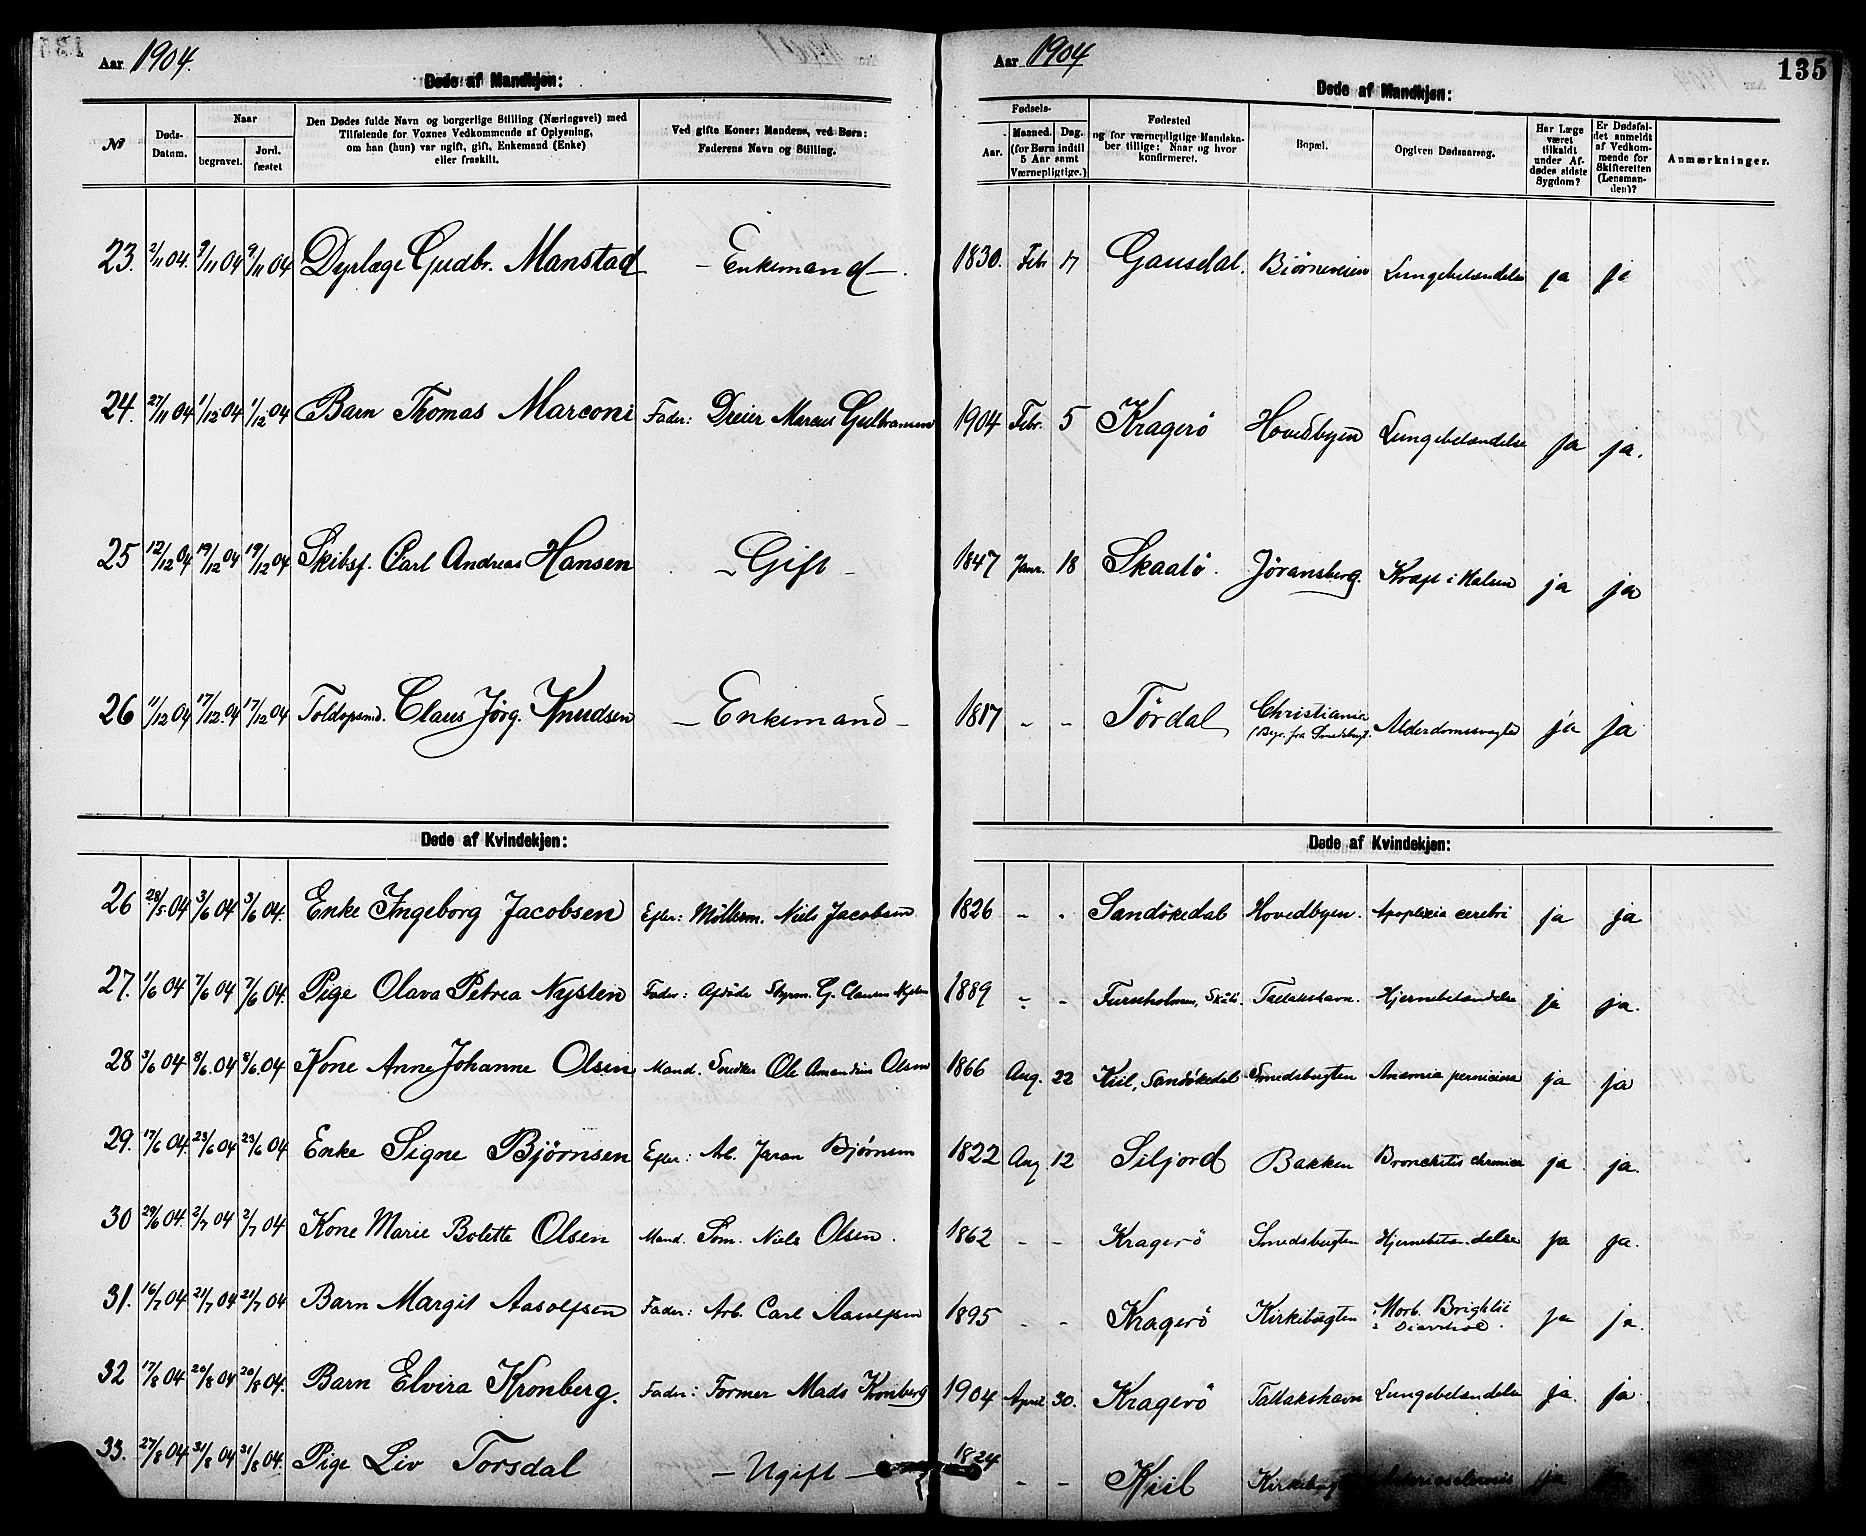 Aar 1904.
Døde af Mandkjøn:
№
Døds-Datum.
Naar
begravet.
Jord. fæstet
Den Dødes fulde Navn og borgerlige Stilling (Næringsvei) med
Tilføiende for Voxnes Vedkommende af Oplysning,
om han (hun) var ugift, gift, Enkemand (Enke)
eller fraskilt.
Ved gifte Koner: Mandens, ved Børn:
Faderens Navn og Stilling.
23. 2/11 04. 9/11 04 9/11 04 Dyrlæge Gudbr. Manstad - Enkemand -
24. 27/11 04 1/12 04 1/12 04 Barn Thomas Marconi Fader: Dreier Marcus Gulbransen
25 12/12 04 19/12 04 19/12 04 Skibsf. Carl Andreas Hansen - Gift -
26 11/12 04 17/12 04 17/12 04 Toldopsmd. Claus Jörg. Knudsen - Enkemand -
Døde af Kvindekjøn:
26 28/5 04 3/6 04 3/6 04. Enke Ingeborg Jacobsen Efter: Møllerm. Niels Jacobsen
27. 1/6 04 7/6 04 7/6 04. Pige Olava Petrea Nysten Fader: Afdøde Styrm. G. Clausen Nysten
28 3/6 04 8/6 04 8/6 04 Kone Anne Johanne Olsen Mand. Snedker Ole Amandius Olsen
29. 17/6 04. 23/6 04 23/6 04. Enke Signe Bjørnsen Efter: Arb. Jøran Bjørnsen
30 29/6 04. 2/7 04 2/7 04 Kone Marie Bolette Olsen Mand. Søm. Niels Olsen.
31. 16/7 04 21/7 04 21/7 04 Barn Margit Aasolfsen Fader: Arb. Carl Aasolfsen
32 17/8 04 20/8 04 20/8 04. Barn Elvira Kronberg. Fader: Former Mads Kronberg
33. 27/8 04 31/8 04 31/8 04. Pige Liv Torsdal - Ugift -
Aar 1904
135
Døde af Mandkjøn:
Fødsels-
Aar.
Maaned. Dag.
(for Børn indtil
5 Aar samt
Værnepligtige.)
Fødested
og for værnepligtige Mandska-
ber tillige: Naar og hvor
konfirmeret.
Bopæl.
Opgiven Dødsaarsag.
Har Læge
været
tilkaldt
under Af-
dødes sidste
Sygdom?
Er Dødsfal-
det anmeldt
af Vedkom-
mende for
Skifteretten
(Lensman-
den)?
Anmærkninger.
1830. Febr 17 Gausdal. Biørneveien Lungebetændelse ja ja
1904 Febr. 5 Kragerö Hovedbyen Lungebetændelse ja ja.
1847 Janr. 18 Skaatö. Jøransberg. Kræft i Halsen ja ja
1817 - - Tördal Christiania
(Begr. fra Smedsbugt. Alderdomssvaghed ja ja
Døde af Kvindekjøn:
1826 - - Sandökedal Hovedbyen. Apoplexia cerebri ja ja
1889 - - Furuholmen, Skåtö. Tallakshavn. Hjernebetændelse ja ja.
1866 Aug. 22 Kiil, Sandökedal Smedsbugten Anæmia perniciosa ja ja
1822 Aug 12 Siljord Bakken Bronchitis chronica ja ja.
1862 - - Kragerö Smedsbugten Hjernebetændelse ja ja.
1895 - - Kragerö Kirkebugten Morb. Brightii
& Diarrhoe. ja ja.
1904 April 30. Kragerö Tallakshavn Lungebetændelse ja. ja.
1824 - - Kiil Kirkebugten ja